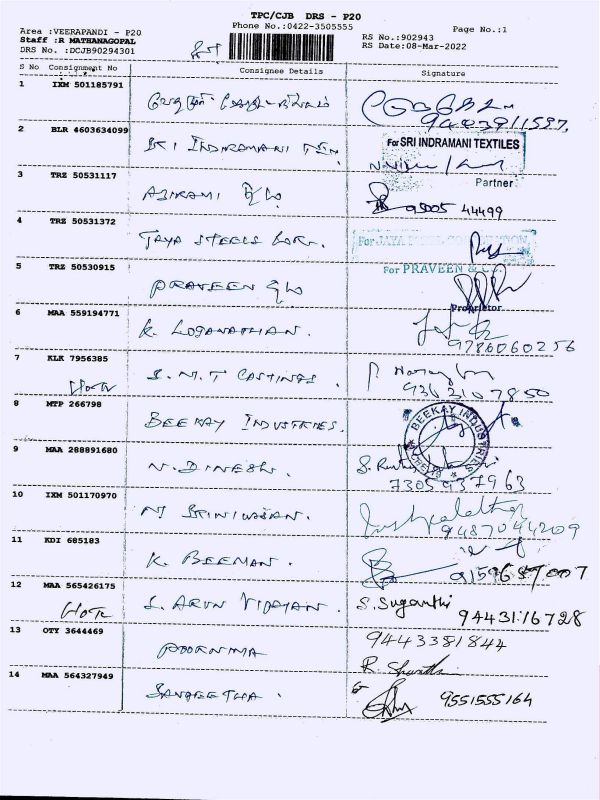 TPC/CJB DRS - P20
Phone No.:0422-3505555
Page No.:1
Area :VEERAPANDI - P20
Staff :R MATHANAGOPAL
DRS No. :DCJB90294301
RS No.:902943
RS Date:08-Mar-2022
S No Consignment No Consignee Details Signature
1 IXM 501185791
2 BLR 4603634099 SRI INDIRAMANI TEX
For SRI INDRAMANI TEXTILES
Partner
3 TRZ 50531117 ABIRAMI
95005 44499
4 TRZ 50531372 JAYA STEELS CORP.
For JAYA STEEL CORPORATION
5 TRZ 50530915 PRAVEEN
For PRAVEEN & CO.
Proprietor
6 MAA 559194771 K. LOGANATHAN.
9786060256
7 KLK 7956385 S.M.T CASTINGS.
9363107850
8 MTP 266798 BEEKAY INDUSTRIES.
BEEKAY INDUSTRIES
9 MAA 288891680 N. DINESH.
7305937963
10 IXM 501170970 N SRINIVASAN.
9487044209
11 KDI 685183 K. BEEMAN.
12 MAA 565426175 S. ARUN VIJAYAN. S. Suganthi
9443116728
13 OTY 3644469 POORNIMA 9443381844
R. Shanthi
14 MAA 564327949 SANGEETHA. 9551555164